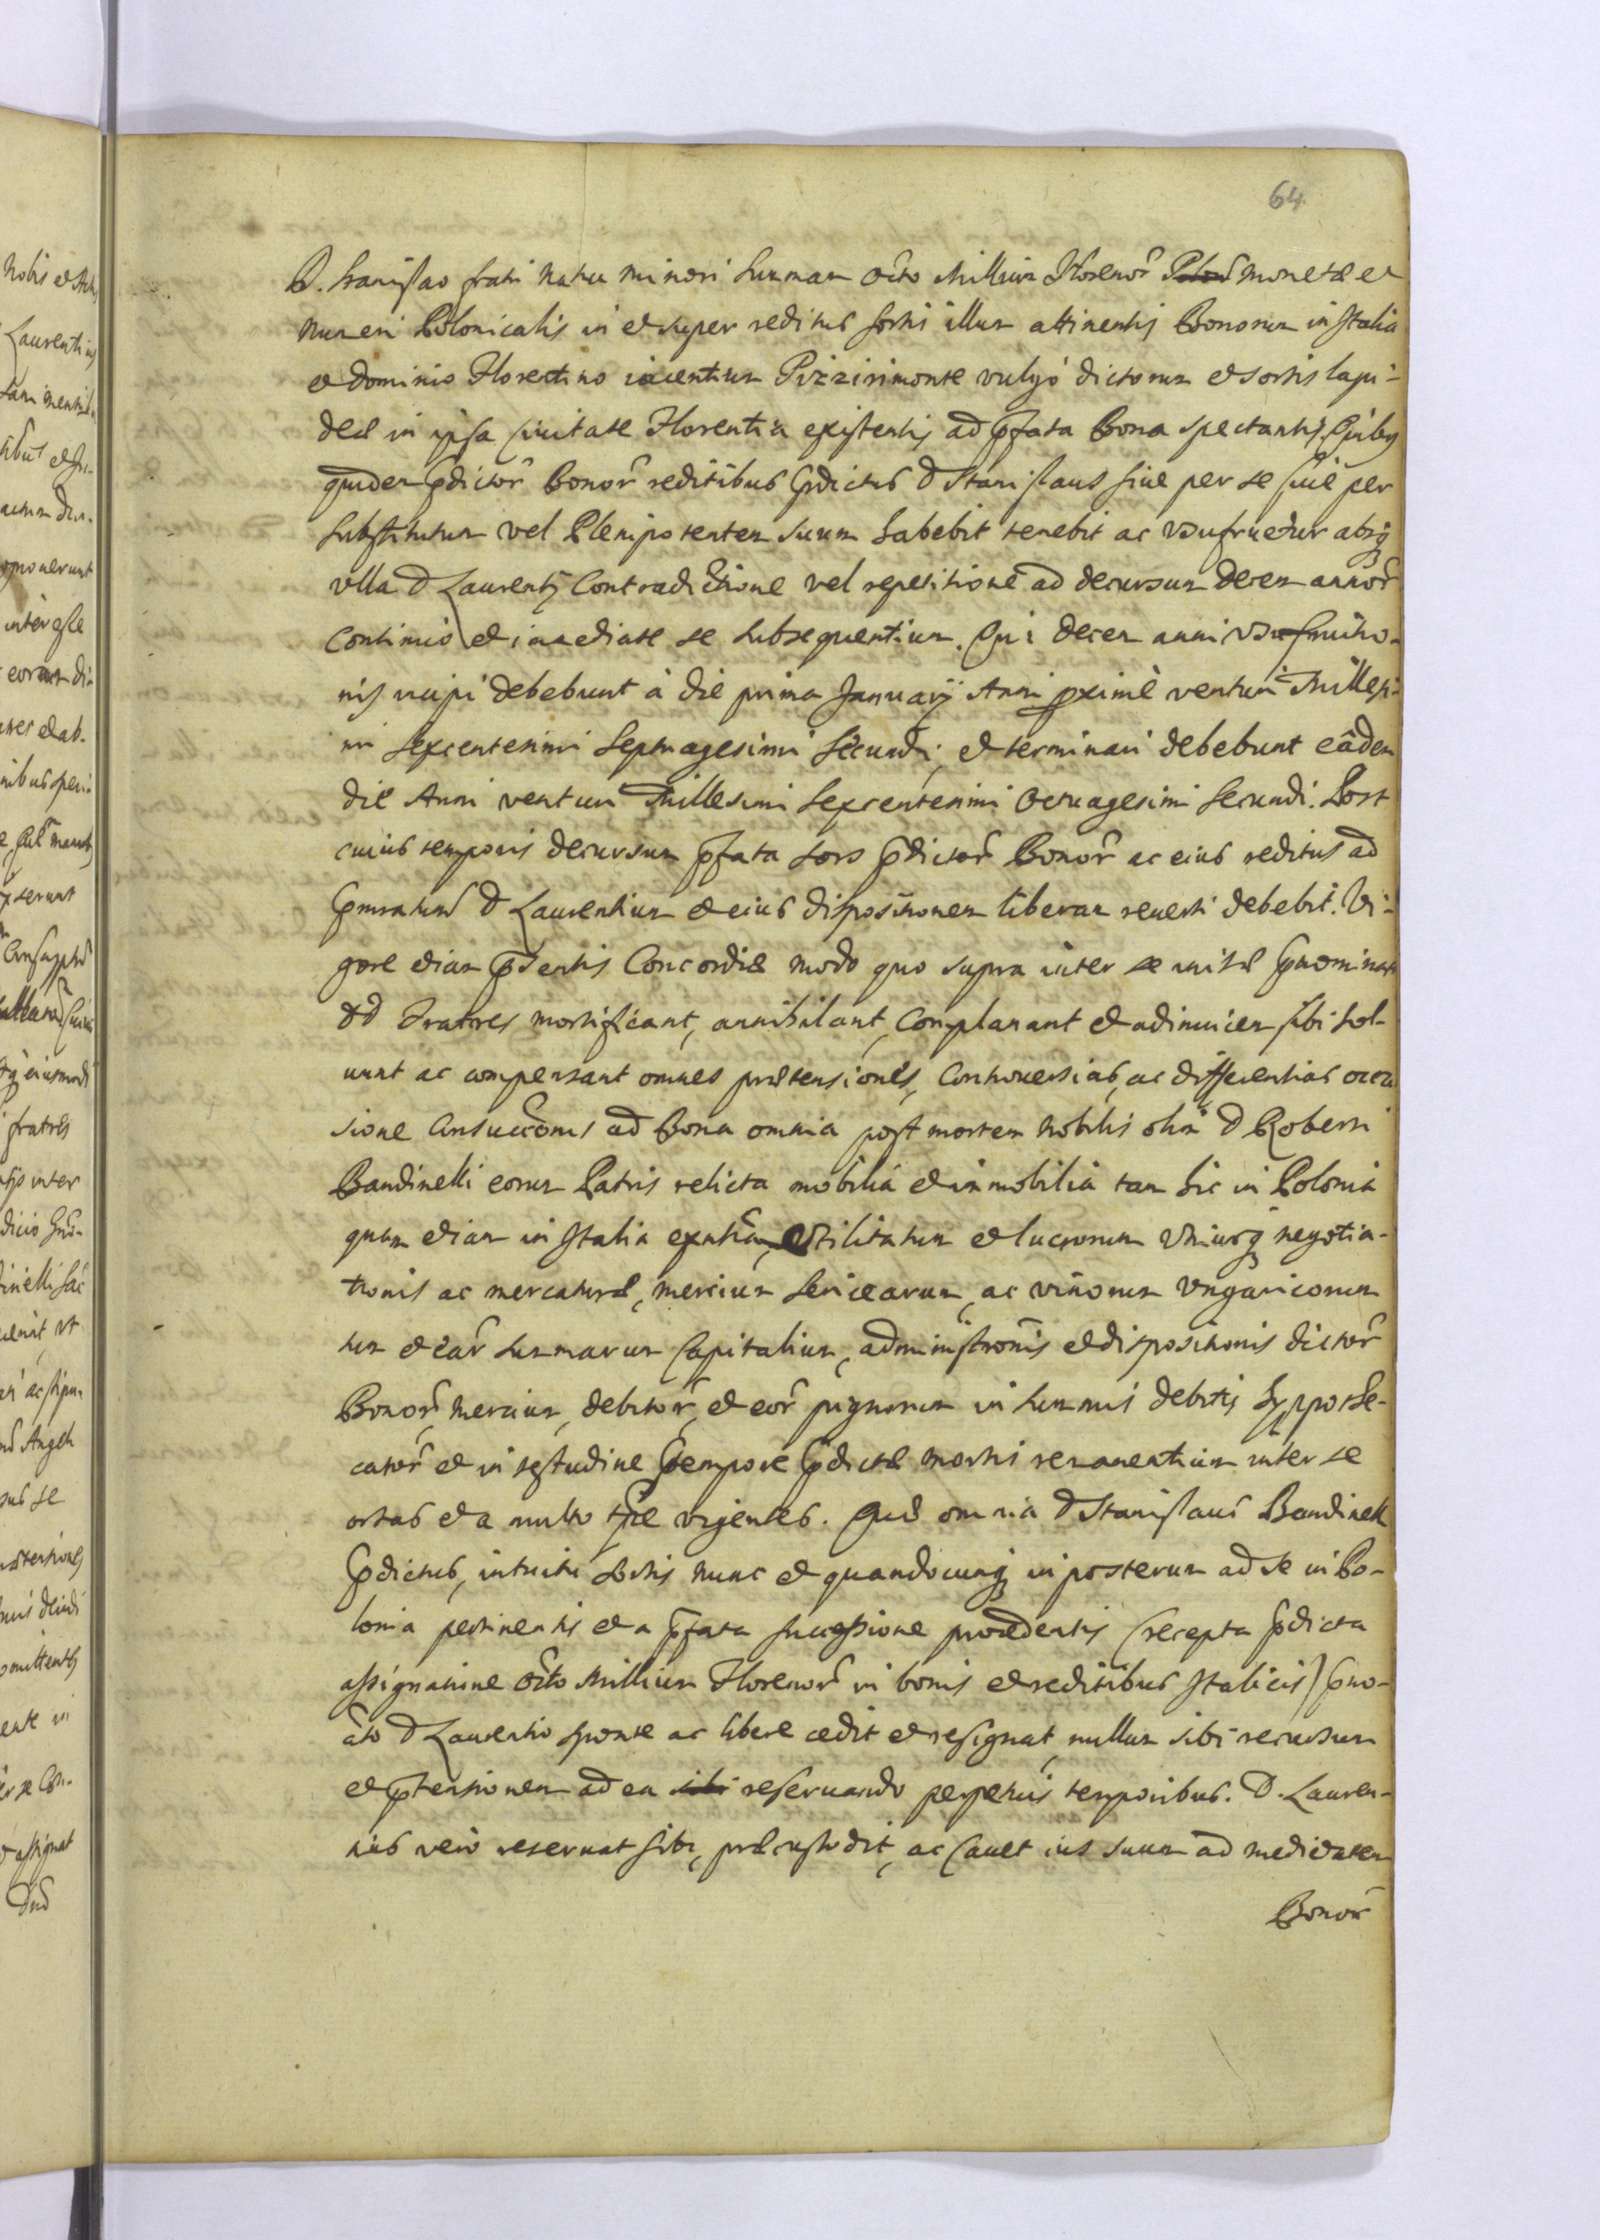 64
D. Stanislao fratri natu minori summam octo millium Florenor̃ Polon̄ monetæ et
numeri Polonicalis in et super reditus sortis illum attinentis Bonorum in Italia
et Dominio Florentino iacentium Pizzirimonte vulgò dictorum et sortis lapi-
deæ in ipsa ciuitate Florentia existentis ad p̃fata Bona spectantis. Quibus
quidem p̃dictor̃ Bonor̃ reditibus p̃dictus D Stanislaus siue per se siue per
substitutum vel Plenipotentem suum habebit tenebit ac vsufruetur absq
vlla D Laurentij contradictione vel repetitione ad decursum decem annor̃
continuo et immediate se subsequentium. Qui decem anni vsufruitio-
nis incipi debebunt à die prima Januarij Anni proximè venturi Millesi-
mi sexcentesimi septuagesimi secundi, et terminari debebunt eâdem
die Anni venturi Millesimi sexcentesimi octuagesimi secundi. Post
cuius temporis decursum p̃fata sors p̃dictor̃ Bonor̃ ac eius reditus ad
D Laurentium et eius dispositionem liberam reuerti debebit. Vi-
gore etiam p̃sentis Concordiæ modo quo supra inter se initæ p̃nominati
DD Fratres mortificant, annihilant, complanant et adinuicem sibi sol-
uunt ac compensant omnes prætensiones, controuersias, ac differentias occa
sione ad Bona omnia post mortem nobilis olim D Roberti
Bandinelli eorum Patris relicta mobilia et immobilia tam hic in Polonia
quam etiam in Italia vtilitatum et lucrorum vtriusq negotia-
tionis ac mercaturæ, mercium sericearum, ac vinorum Vngaricorum
tum et ear̃ summarum capitalium, administrõnis et dispositionis dictor̃
Bonor̃, mercium, debitor̃, et eor̃ pignorum in summis debitis hyppothe-
cator̃ et in tempore p̃dictæ mortis remanentium inter se
ortas et a multo tp̃re vigentes. Quæ omnia D Stanislaus Bandinelli
p̃dictus, intuitu sortis nunc et quandocunq in posterum ad se in Po-
lonia pertinentis et a p̃fata successione procedentis (recepta p̃dicta
assignatione octo millium Florenor̃ in bonis et reditibus Italicis) p̃no-
ato D Laurentio sponte ac libere cedit et resignat, nullum sibi recursum
et p̃tensionem ad ea sibi reseruando perpetuis temporibus. D. Lauren-
tius verò reseruat sibi, præcustodit, ac cauet ius suum ad medietatem
Bonor̃